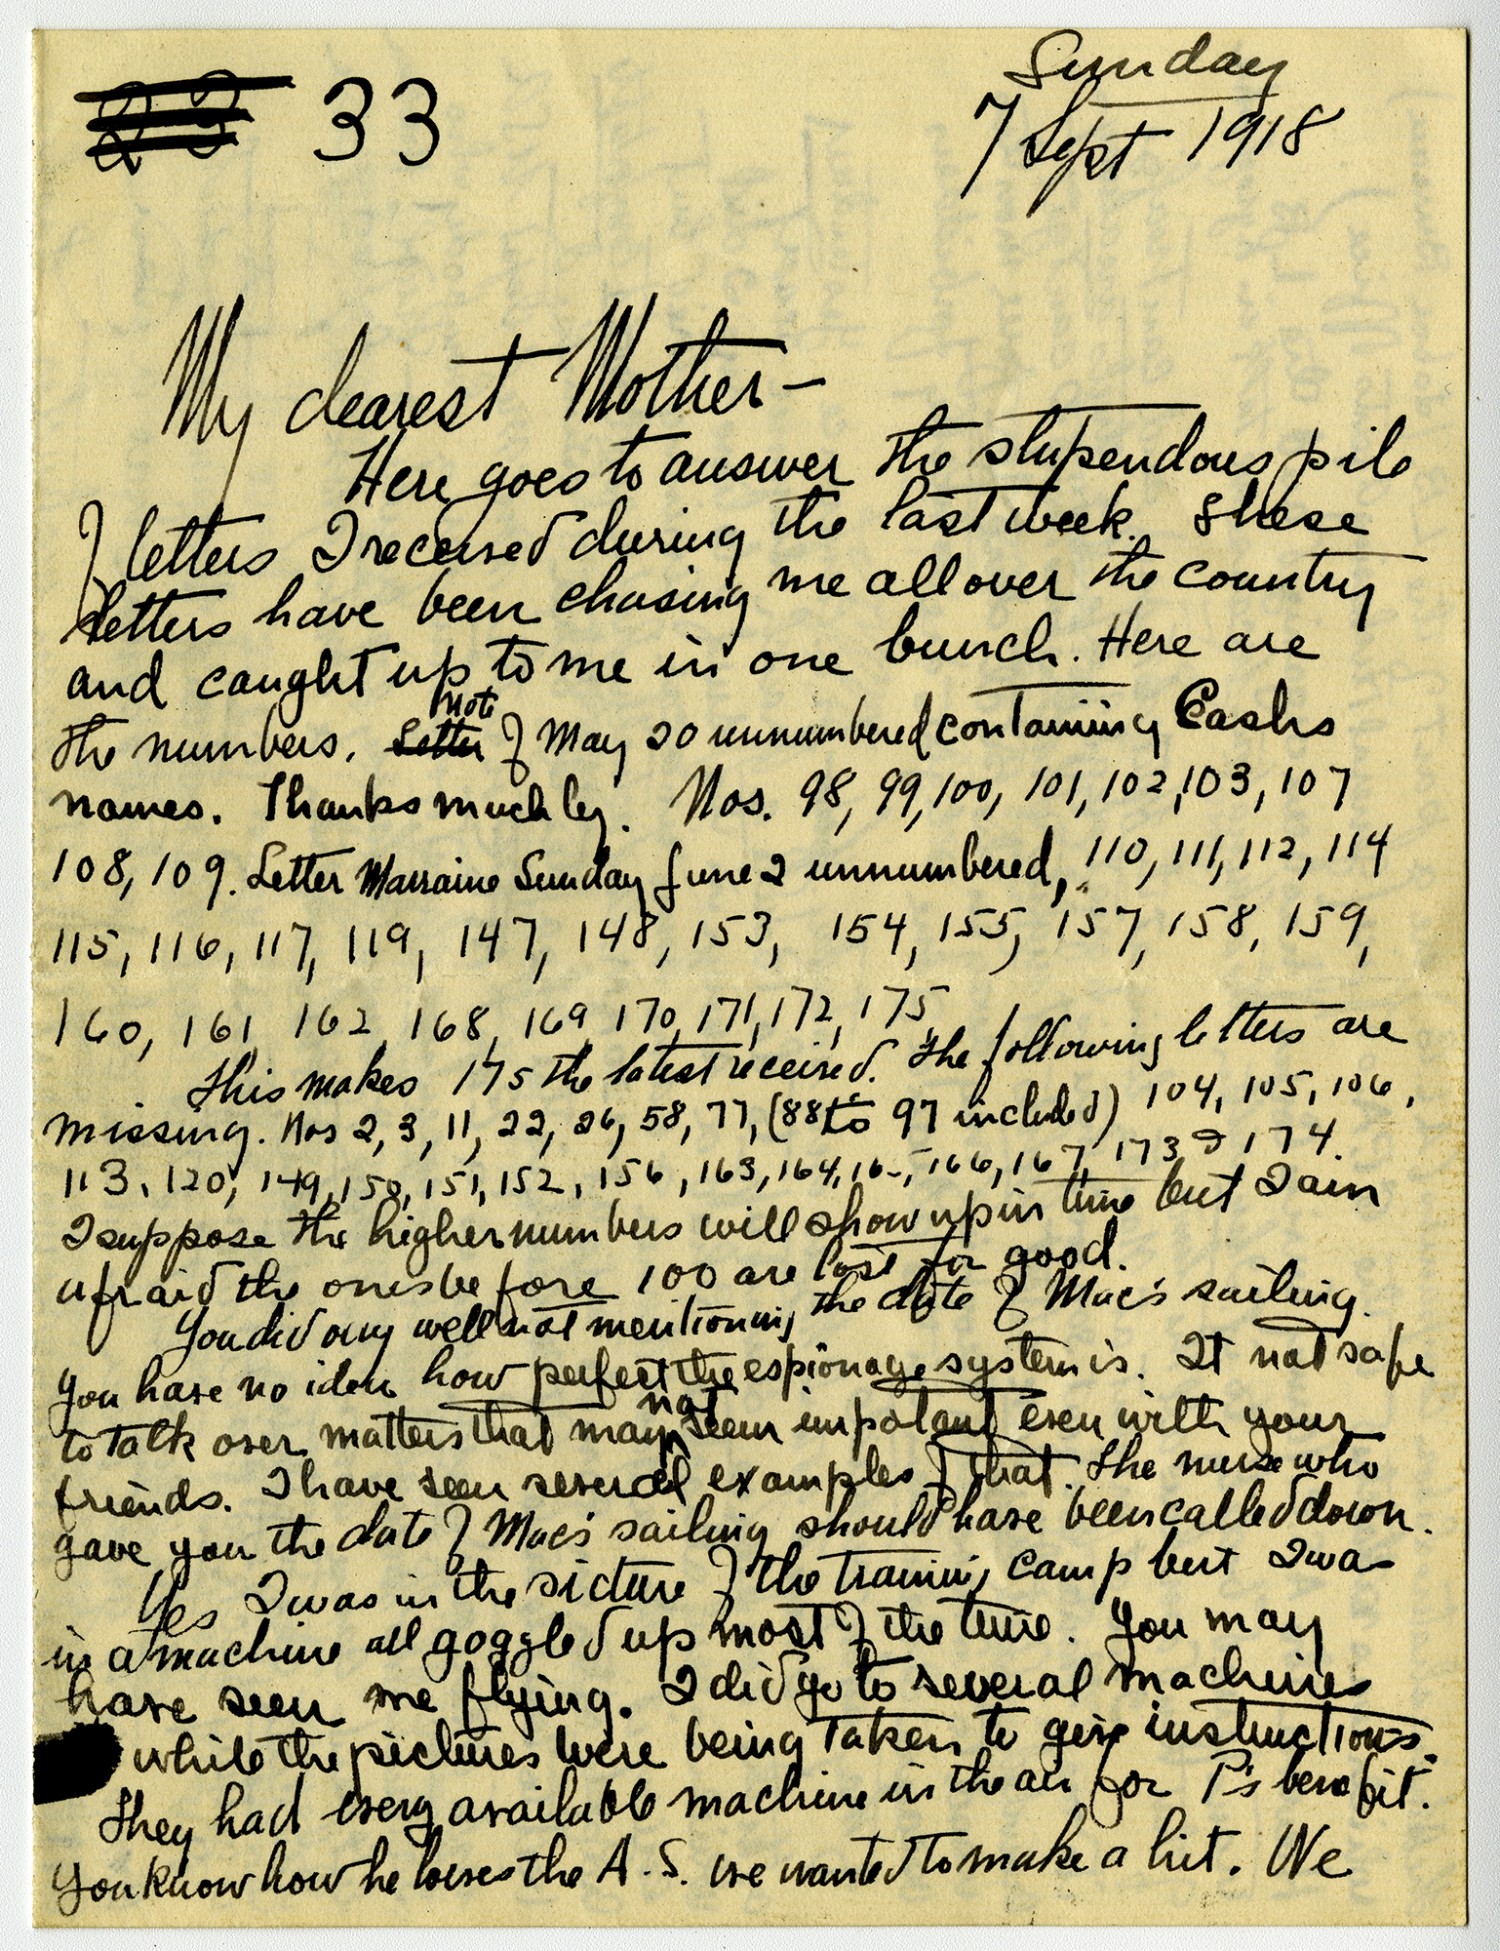 23 33
Sunday
7 Sept 1918
My dearest Mother-
Here goes to answer the stupendous pile
of letters I received during the last week. These
letters have been chasing me all over the country
and caught up to me in one bunch. Here are
the numbers. Letter Note of May 20 unnumbered containing Cash's
names. Thanks muchly. Nos. 98, 99, 100, 101, 102, 103, 107
108, 109. Letter Marraine Sunday June 2 unnumbered, 110, 111, 112, 114
115, 116, 117, 119, 147, 148, 153, 154, 155, 157, 158, 159,
160, 161 162 168, 169 170, 171, 172, 175
This makes 175 the latest received. The following letters are
missing. Nos 2, 3, 11, 22, 26, 58, 77, (88 to 97 included) 104, 105, 106,
113, 120, 149, 150, 151, 152, 156, 163, 164, 16-, 166, 167, 173 & 174.
I suppose the higher numbers will show up in time but I am
afraid the ones before 100 are lost for good.
You did very well not mentioning the date of Mac's sailing.
You have no idea how perfect the espionage system is. It not safe
to talk over matters that may not seem impotant even with your
friends. I have seen several examples of that. The nurse who
gave you the date of Mac's sailing should have been called down.
Yes I was in the picture of the training camp but I was
in a machine all goggled up most of the time. You may
have seen me flying. I did go to several machines
while the pictures were being taken to give instructions.
They had every available machine in the air for P's benefit.
You know how he loves the A.S. we wanted to make a hit. We